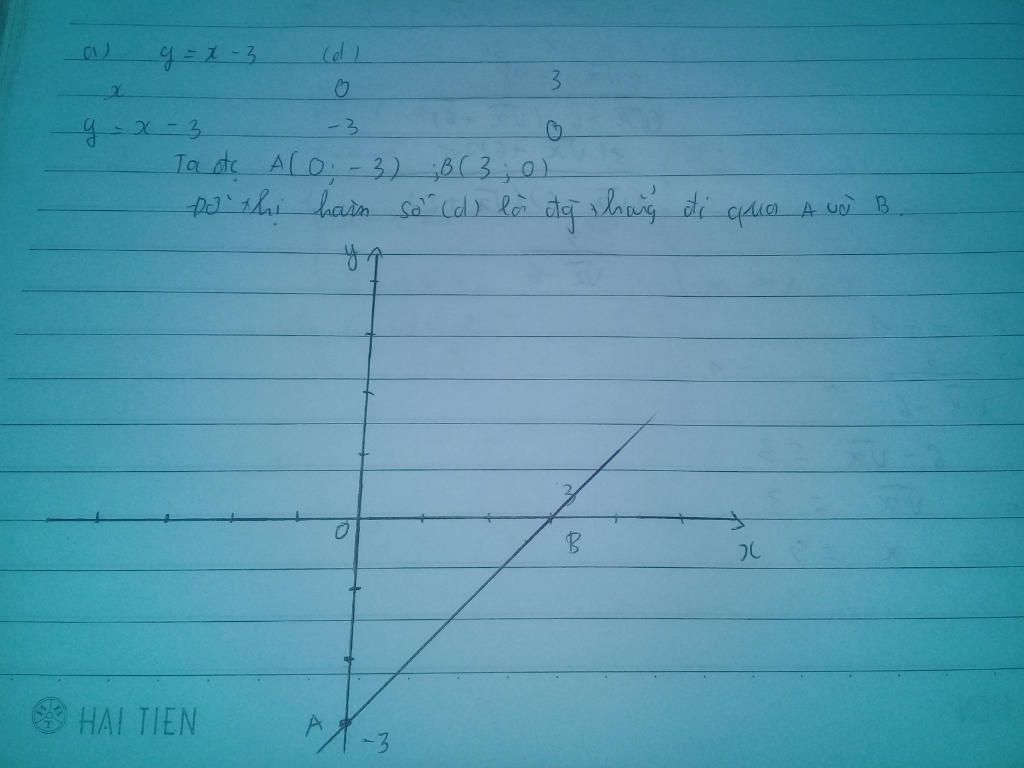 a) y = x - 3 (d)
x 0 3
y = x - 3 -3 0
Ta đc A(0; -3) ; B(3; 0)
Đồ thị hàm số (d) là đg thẳng đi qua A và B.
y
3
O
B
x
A
-3
HAI TIEN